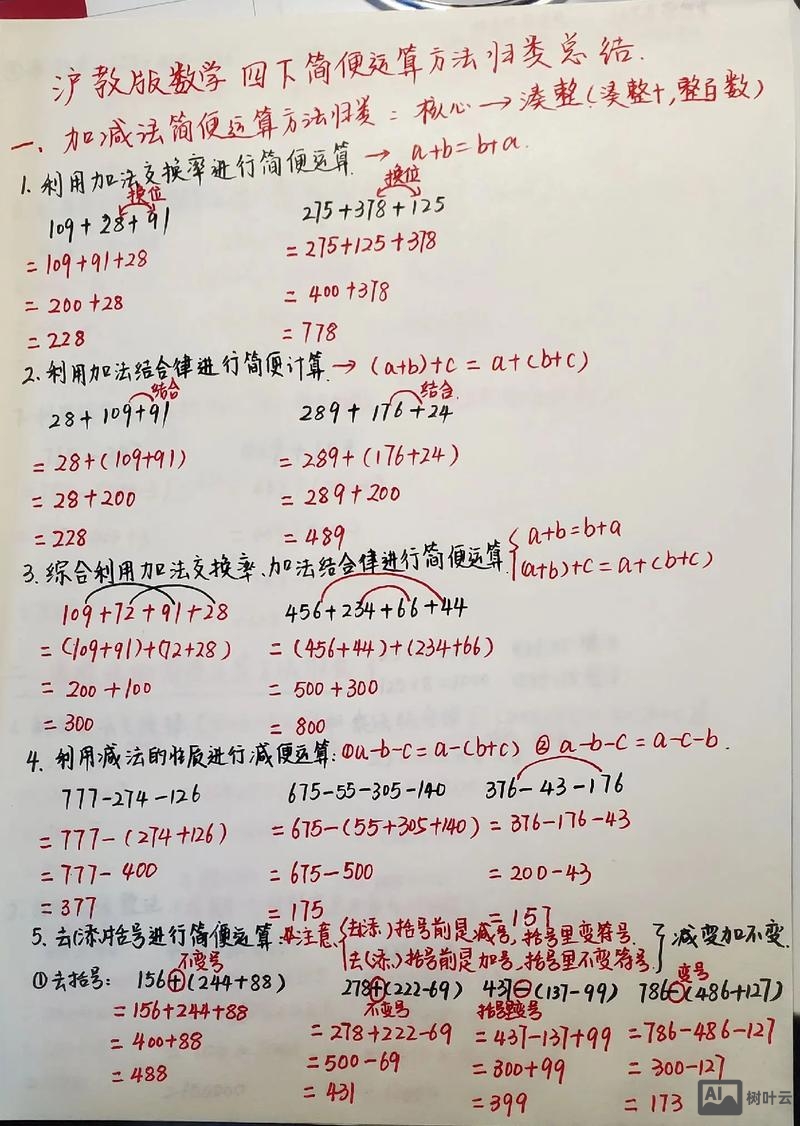 沪教版数学 四下简便运算方法归类总结.
一、加减法简便运算方法归类:核心→凑整(凑整十,整百数)
1. 利用加法交换率进行简便运算 → a+b=b+a.
换位 换位
109+28+91 275+378+125
=109+91+28 =275+125+378
=200+28 =400+378
=228 =778
2. 利用加法结合律进行简便计算. → (a+b)+c=a+(b+c)
结合 结合.
28+109+91 289+176+24
=28+(109+91) =289+(176+24)
=28+200 =289+200
=228 =489
3. 综合利用加法交换率、加法结合律进行简便运算 { a+b=b+a
(a+b)+c=a+(b+c)
109+72+91+28 456+234+66+44
=(109+91)+(72+28) =(456+44)+(234+66)
=200+100 =500+300
=300 =800
4. 利用减法的性质进行减便运算:①a-b-c=a-(b+c) ②a-b-c=a-c-b.
777-274-126 675-55-305-140 376-43-176
=777-(274+126) =675-(55+305+140) =376-176-43
=777-400 =675-500 =200-43
=377 =175 =157
5. 去(添)括号进行简便运算. 注意、{ 去(添)括号前是减号,括号里变符号. } 减变加不变.
去(添)括号前是加号,括号里不变符号.
不变号 变号
①去括号: 156+(244+88) 278+(222-69) 437-(137-99) 786-(486+127)
不变号 括号里变号
=156+244+88 =278+222-69 =437-137+99 =786-486-127
=400+88 =500-69 =300+99 =300-127
=488 =431 =399 =173
AI 树叶云